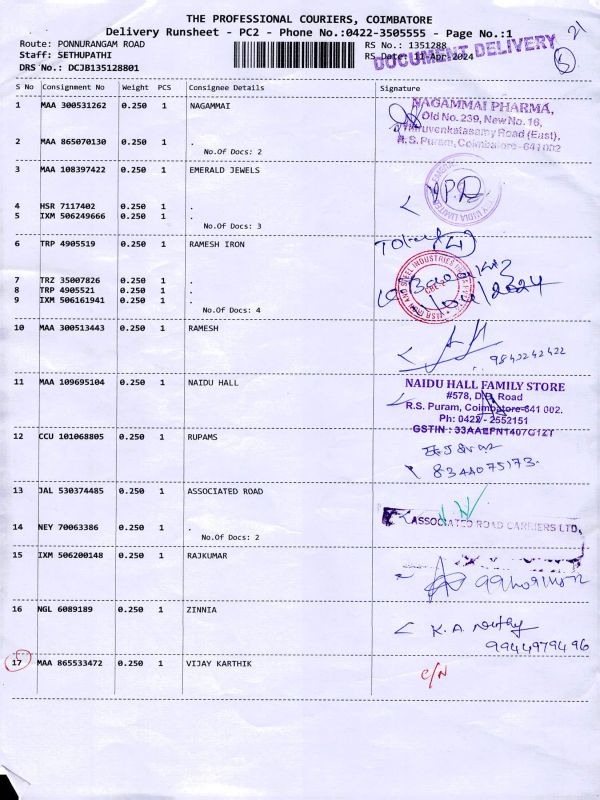 THE PROFESSIONAL COURIERS, COIMBATORE
Delivery Runsheet - PC2 - Phone No.:0422-3505555 - Page No.:1
21
Route: PONNURANGAM ROAD
RS No.: 1351288
Staff: SETHUPATHI
RS Date: 11-Apr-2024
DOCUMENT DELIVERY
5
DRS No.: DCJB135128801
S No Consignment No Weight PCS Consignee Details Signature
1 MAA 300531262 0.250 1 NAGAMMAI
NAGAMMAI PHARMA,
Old No. 239, New No. 16,
Thiruvenkatasamy Road (East),
R.S. Puram, Coimbatore-641 002
2 MAA 865070130 0.250 1 .
No.Of Docs: 2
3 MAA 108397422 0.250 1 EMERALD JEWELS
4 HSR 7117402 0.250 1 .
5 IXM 506249666 0.250 1 .
No.Of Docs: 3
6 TRP 4905519 0.250 1 RAMESH IRON
7 TRZ 35007826 0.250 1 .
8 TRP 4905521 0.250 1 .
9 IXM 506161941 0.250 1 .
No.Of Docs: 4
10 MAA 300513443 0.250 1 RAMESH
9842242422
11 MAA 109695104 0.250 1 NAIDU HALL
NAIDU HALL FAMILY STORE
#578, D.B. Road
R.S. Puram, Coimbatore-641 002.
Ph: 0422 - 2552151
GSTIN : 33AAEFN1407G1ZT
12 CCU 101068805 0.250 1 RUPAMS
8344075173.
13 JAL 530374485 0.250 1 ASSOCIATED ROAD
14 NEY 70063386 0.250 1 .
No.Of Docs: 2
ASSOCIATED ROAD CARRIERS LTD,
15 IXM 506200148 0.250 1 RAJKUMAR
16 NGL 6089189 0.250 1 ZINNIA
K. A.
9944979496
17 MAA 865533472 0.250 1 VIJAY KARTHIK
C/N